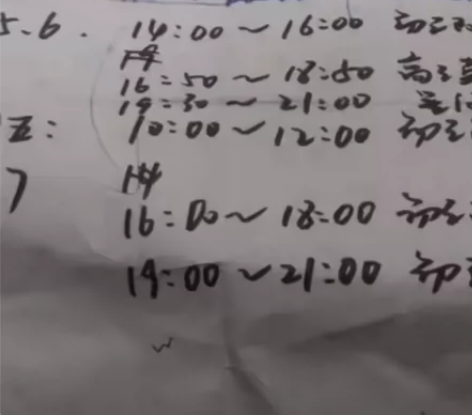 5.6. 14:00~16:00 初三
16:50~18:50 高三
19:30~21:00
五: 10:00~12:00 初三
7
16:00~18:00 初三
19:00~21:00 初三